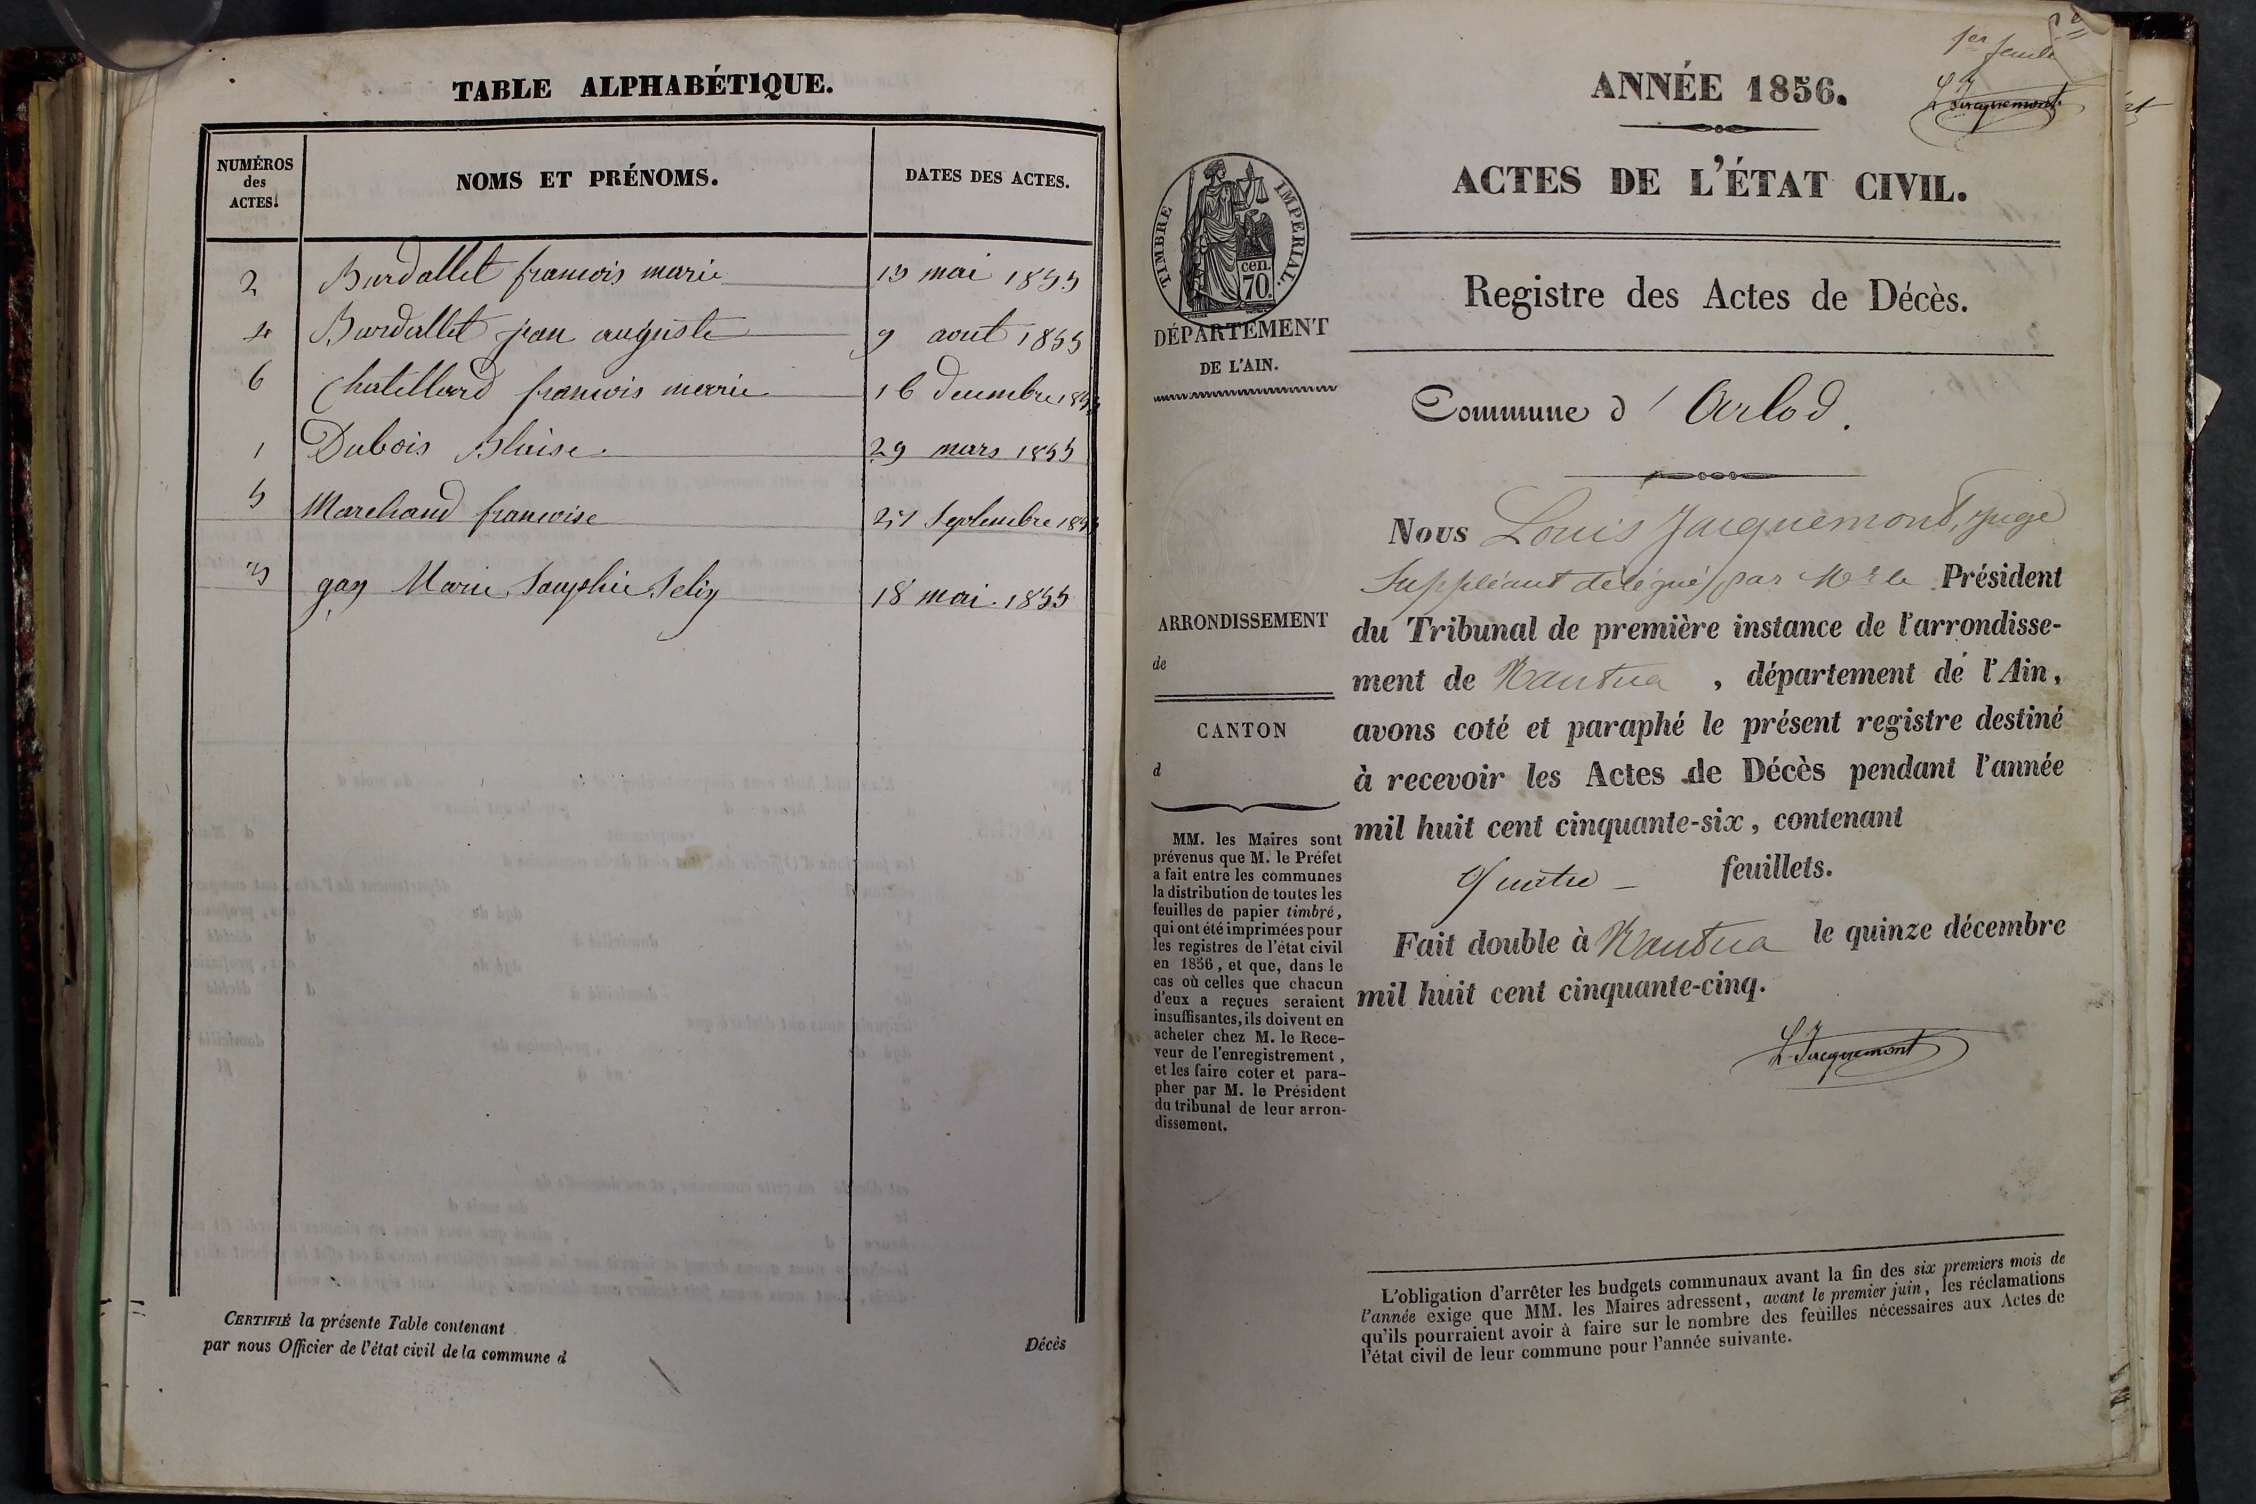 TABLE ALPHABÉTIQUE.
NUMÉROS des ACTES.
NOMS ET PRÉNOMS.
DATES DES ACTES.
2 Burdallet francois marie 13 mai 1855
4 Burdallet jean auguste 9 aout 1855
6 Chatillard francois marie 16 decembre 1855
1 Dubois Blaise 29 mars 1855
5 Marchand francoise Septembre 1855
3 gay Marie 18 mai 1855
CERTIFIÉ la présente Table contenant
Décès
par nous Officier de l'état civil de la commune d
1er feuillet
L Jacquemont
ANNÉE 1856.
ACTES DE L'ÉTAT CIVIL.
Registre des Actes de Décès.
TIMBRE IMPERIAL.
cen.
70
DÉPARTEMENT
DE L'AIN.
Commune d'Arlod.
ARRONDISSEMENT
de
CANTON
d
MM. les Maires sont
prévenus que M. le Préfet
a fait entre les communes
la distribution de toutes les
feuilles de papier timbré,
qui ont été imprimées pour
les registres de l'état civil
en 1856, et que, dans le
cas où celles que chacun
d'eux a reçues seraient
insuffisantes, ils doivent en
acheter chez M. le Rece-
veur de l'enregistrement,
et les faire coter et para-
pher par M. le Président
du tribunal de leur arron-
dissement.
Nous Louis Jacquemont, Juge
Suppléant délégué par Mr le Président
du Tribunal de première instance de l'arrondisse-
ment de Nantua, département de l'Ain,
avons coté et paraphé le présent registre destiné
à recevoir les Actes de Décès pendant l'année
mil huit cent cinquante-six, contenant
Quatre - feuillets.
Fait double à Nantua le quinze décembre
mil huit cent cinquante-cinq.
L Jacquemont
L'obligation d'arrêter les budgets communaux avant la fin des six premiers mois de
l'année exige que MM. les Maires adressent, avant le premier juin, les réclamations
qu'ils pourraient avoir à faire sur le nombre des feuilles nécessaires aux Actes de
l'état civil de leur commune pour l'année suivante.